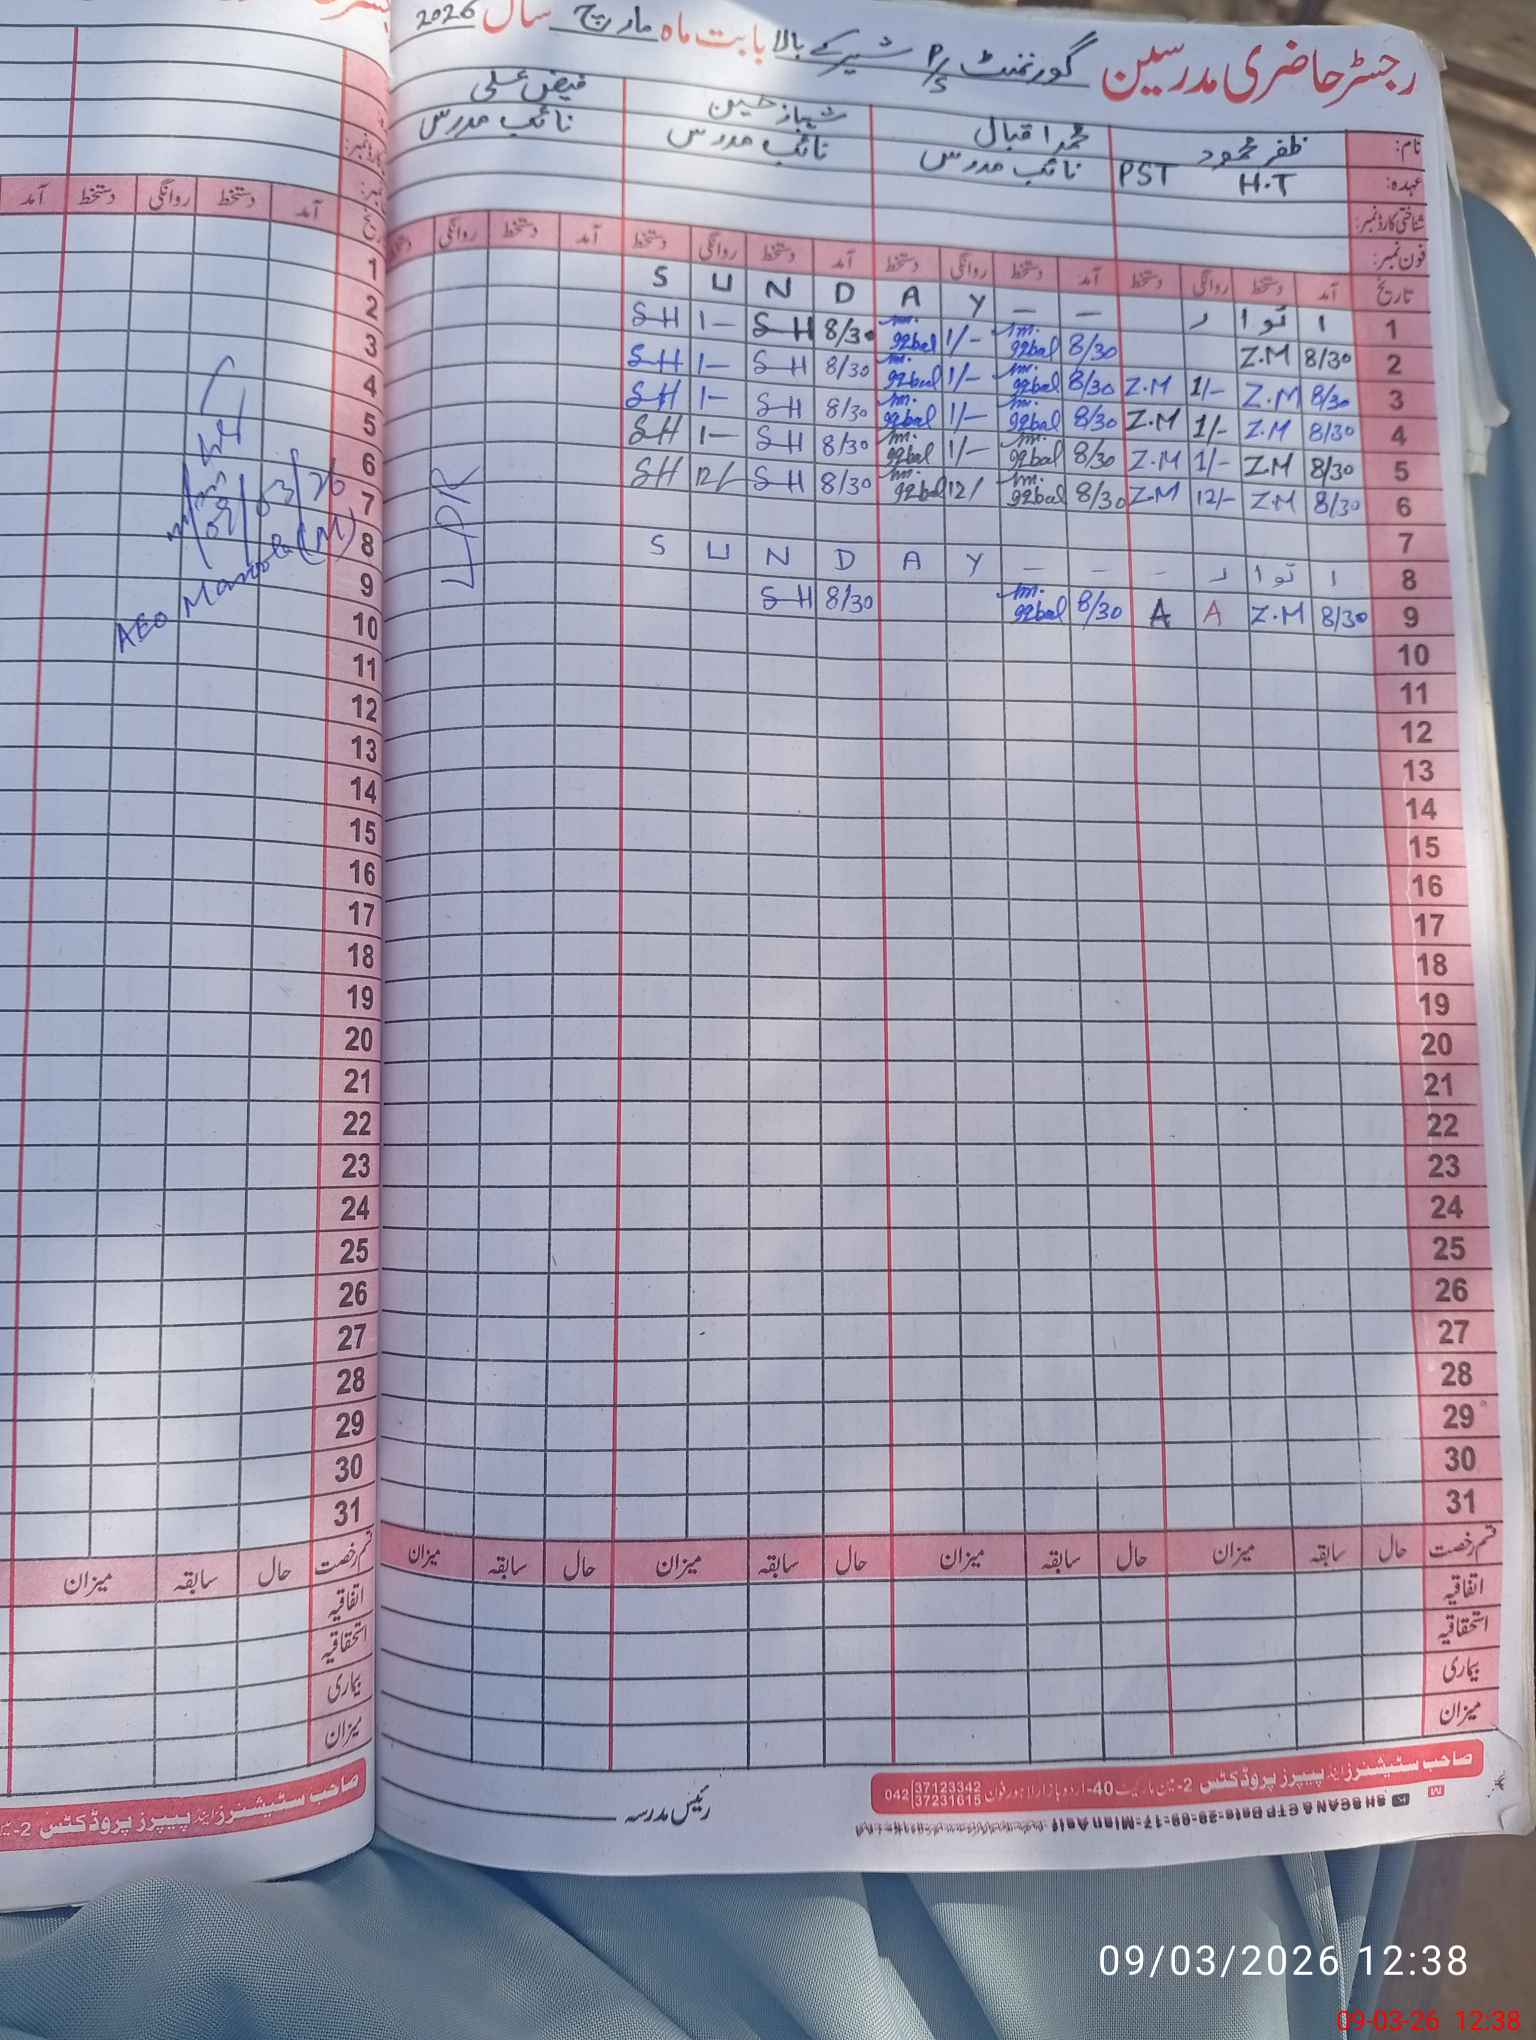 رجسٹر حاضری مدرسین گورنمنٹ P/S شیر کے بالا بابت ماہ مارچ سال 2026
نام: ظفر محمود محمد اقبال شہباز حسین فیض علی
عہدہ: H.T PST نائب مدرس نائب مدرس نائب مدرس
شناختی کارڈ نمبر:
فون نمبر:
تاریخ آمد دستخط روانگی دستخط آمد دستخط روانگی دستخط آمد دستخط روانگی دستخط آمد دستخط روانگی
1 ا توا ر — — S U N D A Y
2 8/30 Z.M 8/30 m. iqbal 1/- m. iqbal 8/30 SH 1- SH
3 8/30 Z.M 1/- Z.M 8/30 m. iqbal 1/- m. iqbal 8/30 SH 1- SH
4 8/30 Z.M 1/- Z.M 8/30 m. iqbal 1/- m. iqbal 8/30 SH 1- SH
5 8/30 Z.M 1/- Z.M 8/30 m. iqbal 1/- m. iqbal 8/30 SH 1- SH
6 8/30 Z.M 12/- Z.M 8/30 m. iqbal 12/ m. iqbal 8/30 SH 12/- SH
7
8 ا توا ر - - - - S U N D A Y
9 8/30 Z.M A A 8/30 m. iqbal 8/30 SH
LPR
10
11
12
13
14
15
16
17
18
19
20
21
22
23
24
25
26
27
28
29
30
31
قسم رخصت حال سابقہ میزان حال سابقہ میزان حال سابقہ میزان حال سابقہ میزان
اتفاقیہ
استحقاقیہ
بیماری
میزان
صاحب سٹیشنرز اینڈ پیپرز پروڈکٹس 2-مین مارکیٹ 40-اردو بازار لاہور فون 042 37123342 37231615
رئیس مدرسہ
آمد دستخط روانگی دستخط آمد
1
2
3
4
5
6
7
8
9
10
11
12
13
14
15
16
17
18
19
20
21
22
23
24
25
26
27
28
29
30
31
09/03/26
AEO
(M)
قسم رخصت حال سابقہ میزان
اتفاقیہ
استحقاقیہ
بیماری
میزان
صاحب سٹیشنرز اینڈ پیپرز پروڈکٹس 2-مین
09/03/2026 12:38
09-03-26 12:38